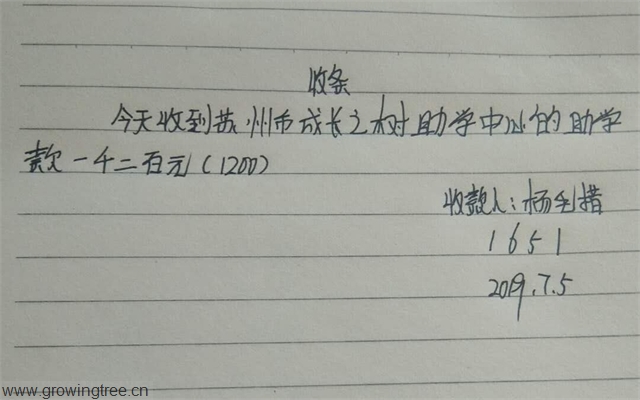 收条
今天收到苏州市成长之树助学中心的助学
款一千二百元(1200)
收款人:杨毛措
1651
2019.7.5
www.growingtree.cn